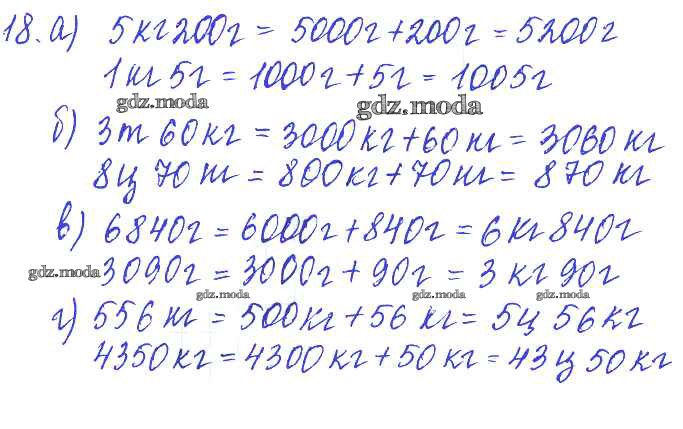 18. а) 5кг200г = 5000г+200г = 5200г
1кг5г = 1000г+5г = 1005г
gdz.moda gdz.moda
б) 3т 60кг = 3000кг+60кг = 3060кг
8ц 70кг = 800кг+70кг = 870кг
в) 6840г = 6000г+840г = 6кг840г
gdz.moda 3090г = 3000г + 90г = 3 кг 90г
gdz.moda gdz.moda gdz.moda
г) 556кг = 500кг+56 кг = 5ц 56кг
4350кг = 4300кг+50кг = 43ц 50кг